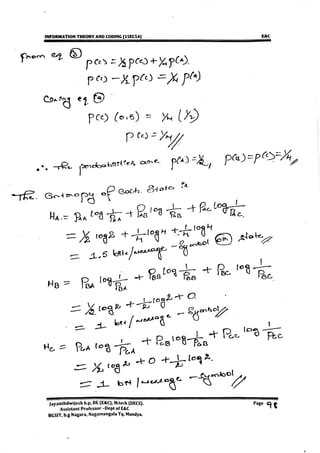 INFORMATION THEORY AND CODING (15EC54) E&C
From eq ⓑ
P(c) = ½ P(c) + ¼ P(A).
P(c) - ½ P(c) = ¼ P(A)
P(c) (0.5) = ¼ (½)
P(c) = ¼ //
∴ The probabilities are P(A) = ½, P(B) = P(C) = ¼ //
The Entropy of Each State is
H_A = P_AA log 1/P_AA + P_AB log 1/P_AB + P_AC log 1/P_AC.
= ½ log 2 + ¼ log 4 + ¼ log 4
= 1.5 bits/message-Symbol (or) state //
H_B = P_BA log 1/P_BA + P_BB log 1/P_BB + P_BC log 1/P_BC.
= ½ log 2 + ½ log 2 + 0
= 1 bit/message-Symbol //
H_C = P_CA log 1/P_CA + P_CB log 1/P_CB + P_CC log 1/P_CC
= ½ log 2 + 0 + ½ log 2.
= 1 bit/message-Symbol //
Jayanthdwijesh h.p, BE (E&C), M.tech (DECS). Page 98
Assistant Professor -Dept of E&C
BGSIT, b.g Nagara, Nagamangala Tq, Mandya.